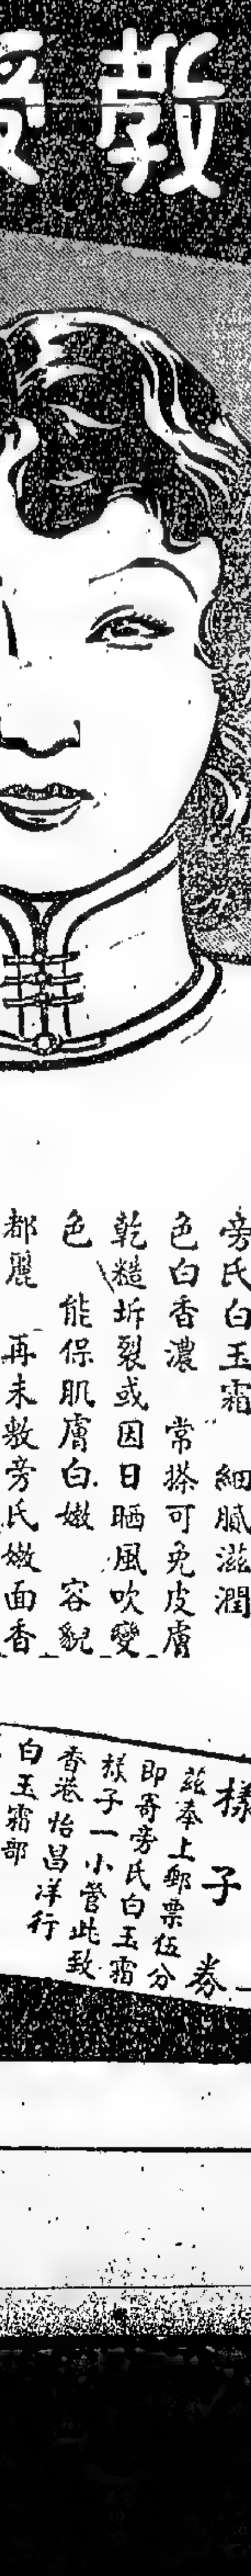 教
旁氏白玉霜　細膩滋潤
色白香濃　常搽可免皮膚
乾糙坼裂或因日晒風吹變
色　能保肌膚白嫩　容貌
都麗　再未敷旁氏嫩面香
樣子券
茲奉上郵票伍分
即寄旁氏白玉霜
樣子一小管此致
香港怡昌洋行
白玉霜部